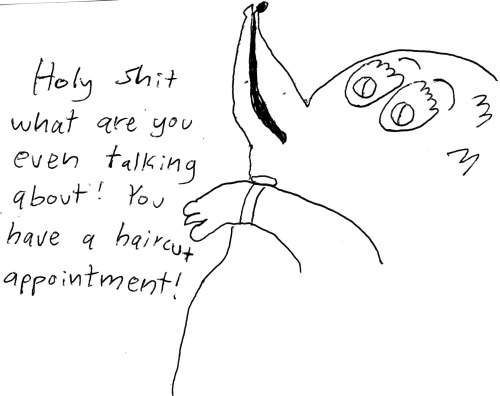 Holy shit
what are you
even talking
about! You
have a haircut
appointment!